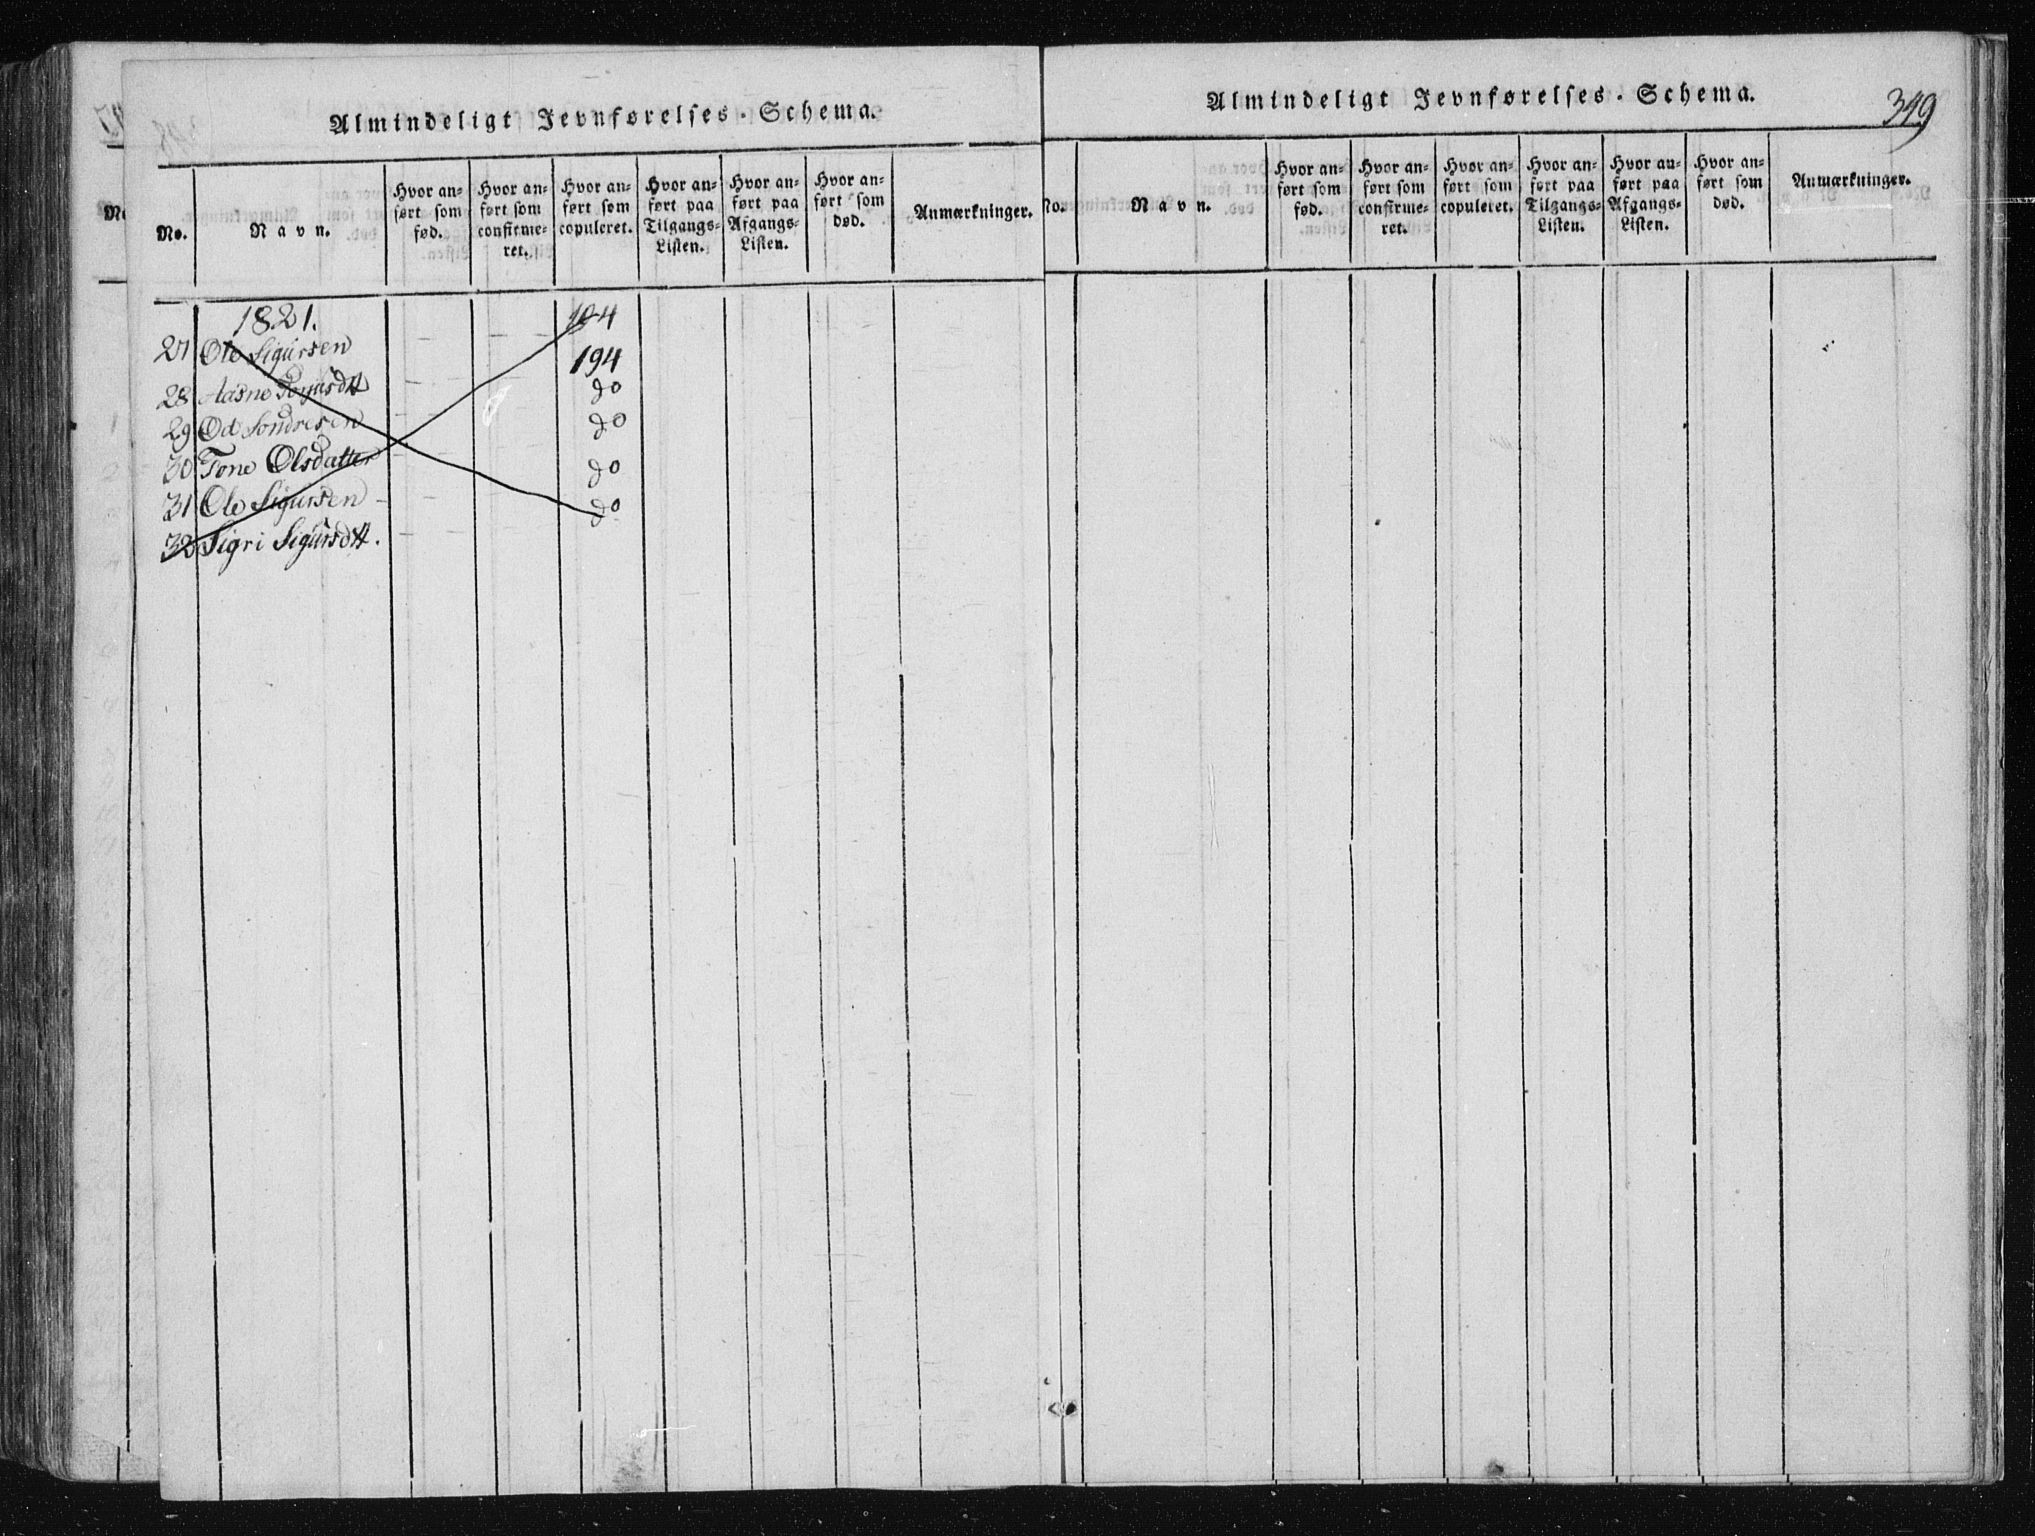 Almindeligt Jevnførelses-Schema.
No.
Navn.
Hvor an-
ført som
fød.
Hvor an-
ført som
confirme-
ret.
Hvor an-
ført som
copuleret.
Hvor an-
ført paa
Tilgangs-
Listen.
Hvor an-
ført paa
Afgangs-
Listen.
Hvor an-
ført som
død.
Anmærkninger.
1821.
27 Ole Sigursen 194
28 Aasne do
29 Od Sondresen do
30 Tone Olsdatter do
31 Ole Sigursen do
32 Sigri Sigursdtt.
Almindeligt Jevnførelses-Schema.
349
No.
Navn.
Hvor an-
ført som
fød.
Hvor an-
ført som
confirme-
ret.
Hvor an-
ført som
copuleret.
Hvor an-
ført paa
Tilgangs-
Listen.
Hvor an-
ført paa
Afgangs-
Listen.
Hvor an-
ført som
død.
Anmærkninger.